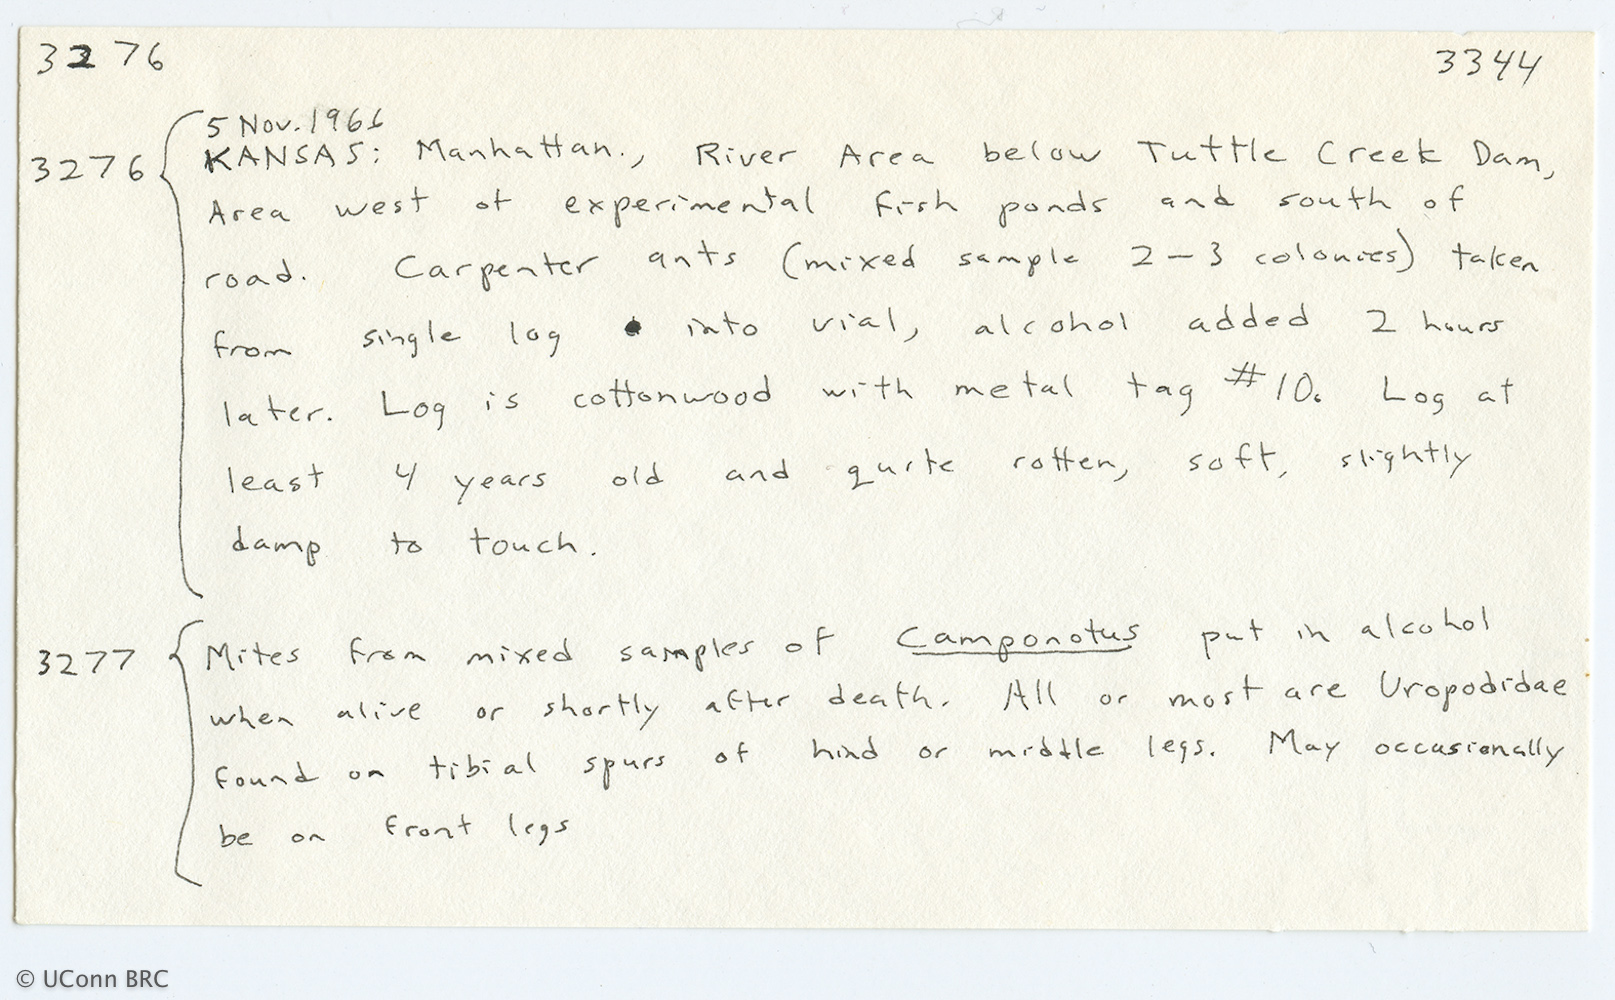 3276 3344
5 Nov. 1966
3276 KANSAS: Manhattan., River Area below Tuttle Creek Dam,
Area west of experimental fish ponds and south of
road. Carpenter ants (mixed sample 2-3 colonies) taken
from single log into vial, alcohol added 2 hours
later. Log is cottonwood with metal tag #10. Log at
least 4 years old and quite rotten, soft, slightly
damp to touch.
3277 Mites from mixed samples of Camponotus put in alcohol
when alive or shortly after death. All or most are Uropodidae
found on tibial spurs of hind or middle legs. May occasionally
be on front legs
© UConn BRC